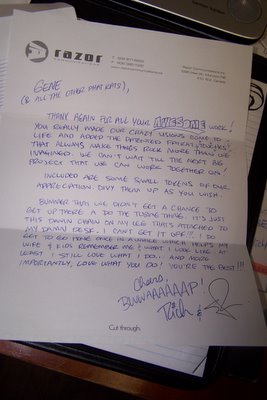 razor
GENE
(& ALL THE OTHER PHATKATS),
THANK AGAIN FOR ALL YOUR AWESOME WORK!
YOU REALLY MADE OUR CRAZY VISIONS COME TO
LIFE AND ADDED THE PATENTED PHATKAT TOUCHES
THAT ALWAYS MAKE THINGS ROCK MORE THAN WE
IMAGINED. WE CAN'T WAIT TILL THE NEXT BIG
PROJECT THAT WE CAN WORK TOGETHER ON!
INCLUDED ARE SOME SMALL TOKENS OF OUR
APPRECIATION. DIVY THEM UP AS YOU WISH.
BUMMER THAT WE DIDN'T GET A CHANCE TO
GET UP THERE & DO THE TUBING THING. IT'S JUST
THIS DAMN CHAIN ON MY LEG THAT'S ATTACHED TO
MY DAMN DESK. I CAN'T GET IT OFF!!! I DO
GET TO GO HOME ONCE IN A WHILE WHICH HELPS MY
WIFE & KIDS REMEMBER ME & WHAT I LOOK LIKE. AT
LEAST I STILL LOVE WHAT I DO... AND MORE
IMPORTANTLY, LOVE WHAT YOU DO! YOU'RE THE BEST!!!
Cheers,
BWWAAAAAAP!
Rich
Cut through.